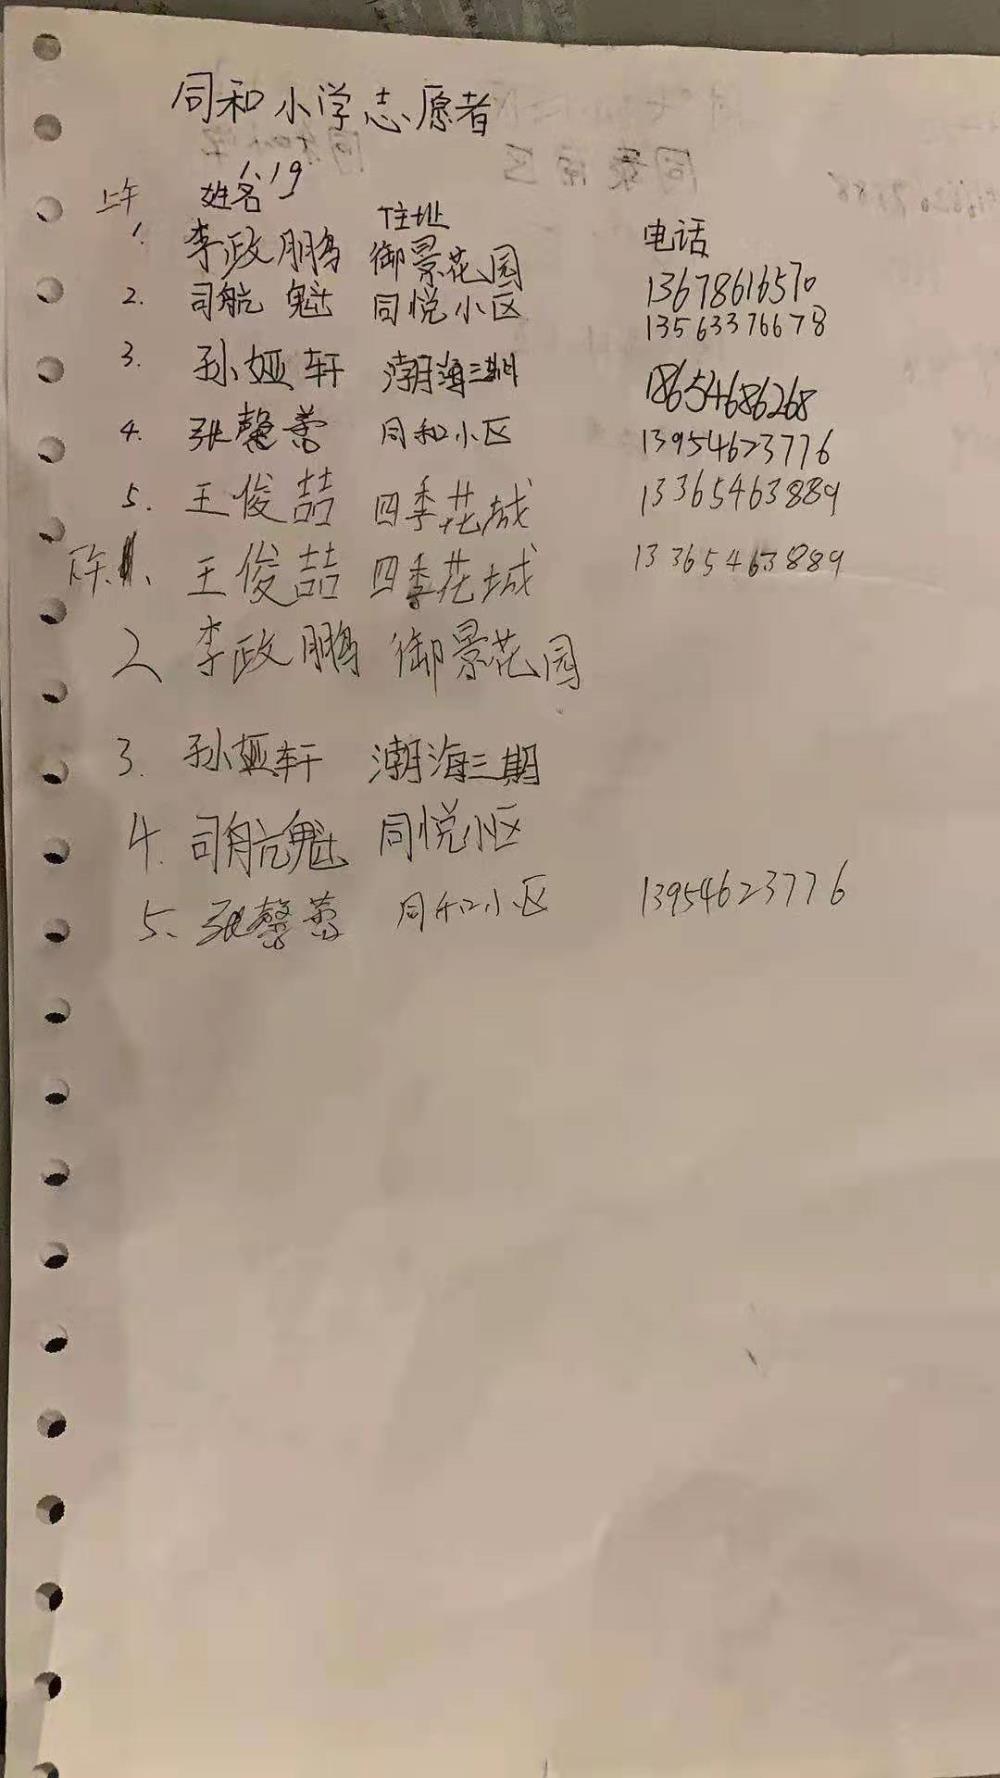 同和小学志愿者
1.19
上午 姓名 住址 电话
1. 李政鹏 御景花园 13678616570
2. 司航魁 同悦小区 13563376678
3. 孙娅轩 潮海三期 18654686268
4. 张馨蕾 同和小区 13954623776
5. 王俊喆 四季花城 13365463889
下午1、王俊喆 四季花城 13365463889
2 李政鹏 御景花园
3. 孙娅轩 潮海三期
4. 司航魁 同悦小区
5、张馨蕾 同和小区 13954623776